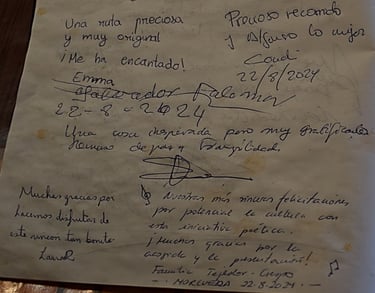 Una ruta preciosa
y muy original
¡Me ha encantado!
Emma
Precioso recorrido
y Alfonso lo mejor
22/8/2024
Salvador Palomar
22-8-2024
Una cosa pero muy
de paz y tranquilidad.
Muchas gracias por
hacernos disfrutar de
este rincon tan bonito
Nuestras más sinceras felicitaciones
por potenciar la cultura con
esta iniciativa poética.
¡Muchas gracias por la
acogida y la presentación!
Familia Tejedor-Crespo
-. MORCUERA 22-8-2024.-